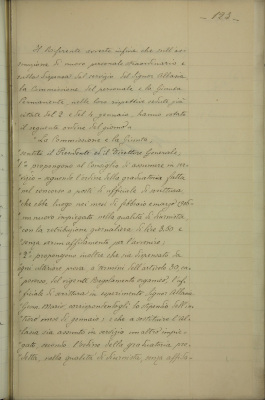 - 123 -
Il Referente avverte infine che sull'as-
sunzione di nuovo personale straordinario e
sulla dispensa dal servizio del signor Albana
la Commissione del personale e la Giunta
Permanente, nelle loro rispettive sedute più
citate del 2 e del 4 gennaio, hanno votato
il seguente ordine del giorno:
"La Commissione e la Giunta;
"sentito il Presidente ed il Direttore Generale;
"1° propongono al Consiglio di assumere in ser-
vizio e seguendo l'ordine della graduatoria fatta
nel concorso a posti di ufficiale di scrittura
che ebbe luogo nei mesi di febbraio e marzo 1906
un nuovo impiegato nella qualità di diurnista,
con la retribuzione giornaliera di lire 3,50 e
senza verun affidamento per l'avvenire;
"2° propongono inoltre che sia dispensato da
ogni ulteriore prova a termini dell'articolo 30, ca-
poverso, del vigente Regolamento organico, l'uf-
ficiale di scrittura in esperimento, signor Albana
corrispondendogli lo stipendio dell'in-
tiero mese di gennaio; e che a sostituire l'Al-
bana sia assunto in servizio un altro impie-
gato, secondo l'ordine della graduatoria pre-
detta, nella qualità di diurnista, senza affida-